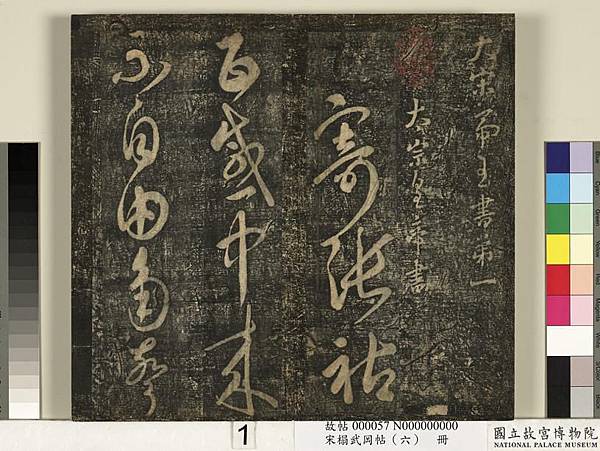 大宋帝王書第一
太宗皇帝書
寄張祜
百感中來
不自由角聲
1
故帖 000057 N000000000
宋榻武岡帖（六） 冊
國立故宮博物院
NATIONAL PALACE MUSEUM